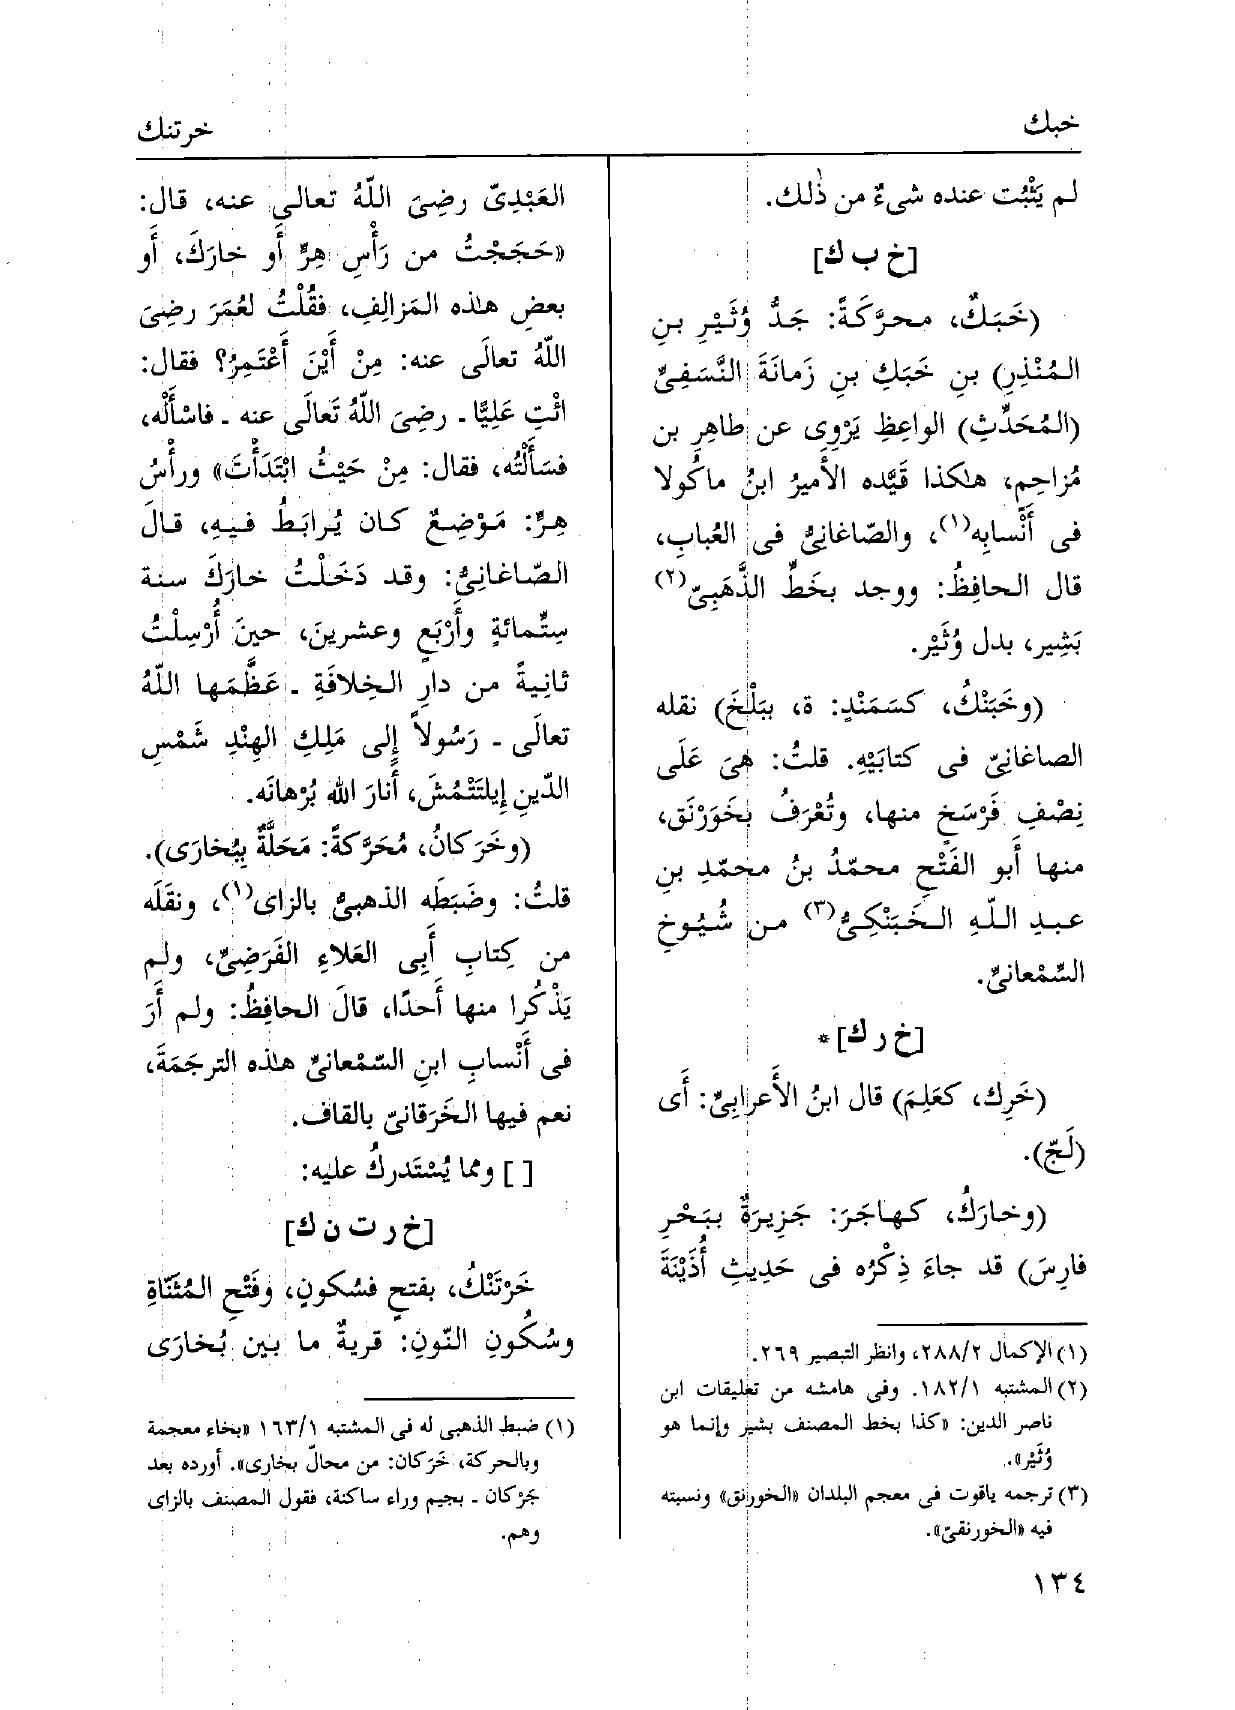 خبك
خرتنك
لم يَثْبُت عنده شىءٌ من ذٰلك.
[خ ب ك]
(خَبَكٌ، محرّكَةً: جَدُّ وُثَيْرِ بنِ
المُنْذِرِ) بنِ خَبَكِ بنِ زَمانَةَ النَّسَفِىِّ
(المُحَدِّثِ) الواعِظِ يَرْوِى عن طاهِرِ بن
مُزاحِمٍ، هٰكذا قَيَّده الأَميرُ ابنُ ماكُولا
فى أَنْسابِه(١)، والصّاغانِىُّ فى العُبابِ،
قال الحافِظُ: ووجد بخَطِّ الذَّهَبِىّ(٢)
بَشِير، بدل وُثَيْر.
(وخَبَنْكُ، كسَمَنْدٍ: ة، بِبَلْخَ) نقله
الصاغانِىّ فى كتابَيْهِ. قلتُ: هىَ عَلَى
نِصْفِ فَرْسَخٍ منها، وتُعْرَفُ بخَوَرْنَق،
منها أَبو الفَتْحِ محمّدُ بنُ محمّدِ بنِ
عبدِ اللّهِ الخَبَنْكِىُّ(٣) من شُيُوخِ
السِّمْعانىِّ.
[خ ر ك]*
(خَرِك، كعَلِمَ) قال ابنُ الأَعرابِىِّ: أَى
(لَجّ).
(وخارَكُ، كهاجَرَ: جَزِيرَةٌ ببَحْرِ
فارِسَ) قد جاءَ ذِكْرُه فى حَدِيثِ أُذَيْنَةَ
(١) الإكمال ٢٨٨/٢، وانظر التبصير ٢٦٩.
(٢) المشتبه ١٨٢/١. وفى هامشه من تعليقات ابن
ناصر الدين: «كذا بخط المصنف بشير وإنما هو
وُثَيْر».
(٣) ترجمه ياقوت فى معجم البلدان «الخورنق» ونسبته
فيه «الخورنقىّ».
١٣٤
العَبْدِىّ رضِىَ اللّهُ تعالى عنه، قال:
«حَجَجْتُ من رَأْسِ هِرٍّ أَو خارَكَ، أَو
بعضِ هٰذه المَزالِفِ، فقُلْتُ لعُمَرَ رضِىَ
اللّهُ تعالَى عنه: مِنْ أَيْنَ أَعْتَمِرُ؟ فقال:
ائْتِ عَلِيًّا - رضِىَ اللّهُ تَعالَى عنه - فاسْأَلْه،
فسَأَلْتُه، فقال: مِنْ حَيْثُ ابْتَدَأْتَ» ورأْسُ
هِرٍّ: مَوْضِعٌ كان يُرابَطُ فيهِ، قالَ
الصّاغانِىُّ: وقد دَخَلْتُ خارَكَ سنة
سِتِّمائةٍ وأَرْبَعٍ وعشرينَ، حينَ أُرْسِلْتُ
ثانِيةً من دارِ الخِلافَةِ - عَظَّمَها اللّهُ
تعالَى - رَسُولاً إِلى مَلِكِ الهِنْدِ شَمْسِ
الدّينِ إِيلتَتْمُشَ، أَنارَ الله بُرْهانَه.
(وخَرَكانُ، مُحَرَّكةً: مَحَلَّةٌ بِبُخارَى).
قلتُ: وضَبَطَه الذهبىُّ بالزاى(١)، ونقَلَه
من كِتابِ أَبِى العَلاءِ الفَرَضِىِّ، ولم
يَذْكُرا منها أَحدًا، قالَ الحافِظُ: ولم أَرَ
فى أَنْسابِ ابنِ السّمْعانىِّ هٰذه الترجَمَةَ،
نعم فيها الخَرَقانىّ بالقاف.
[ ] ومما يُسْتَدركُ عليه:
[خ ر ت ن ك]
خَرْتَنْكُ، بفتحٍ فسُكونٍ، وفَتْحِ المُثَنّاةِ
وسُكُونِ النّونِ: قريةٌ ما بين بُخارَى
(١) ضبط الذهبى له فى المشتبه ١٦٣/١ «بخاء معجمة
وبالحركة، خَرَكان: من محالّ بخارى». أورده بعد
جَرْكان - بجيم وراء ساكنة، فقول المصنف بالزاى
وهم.